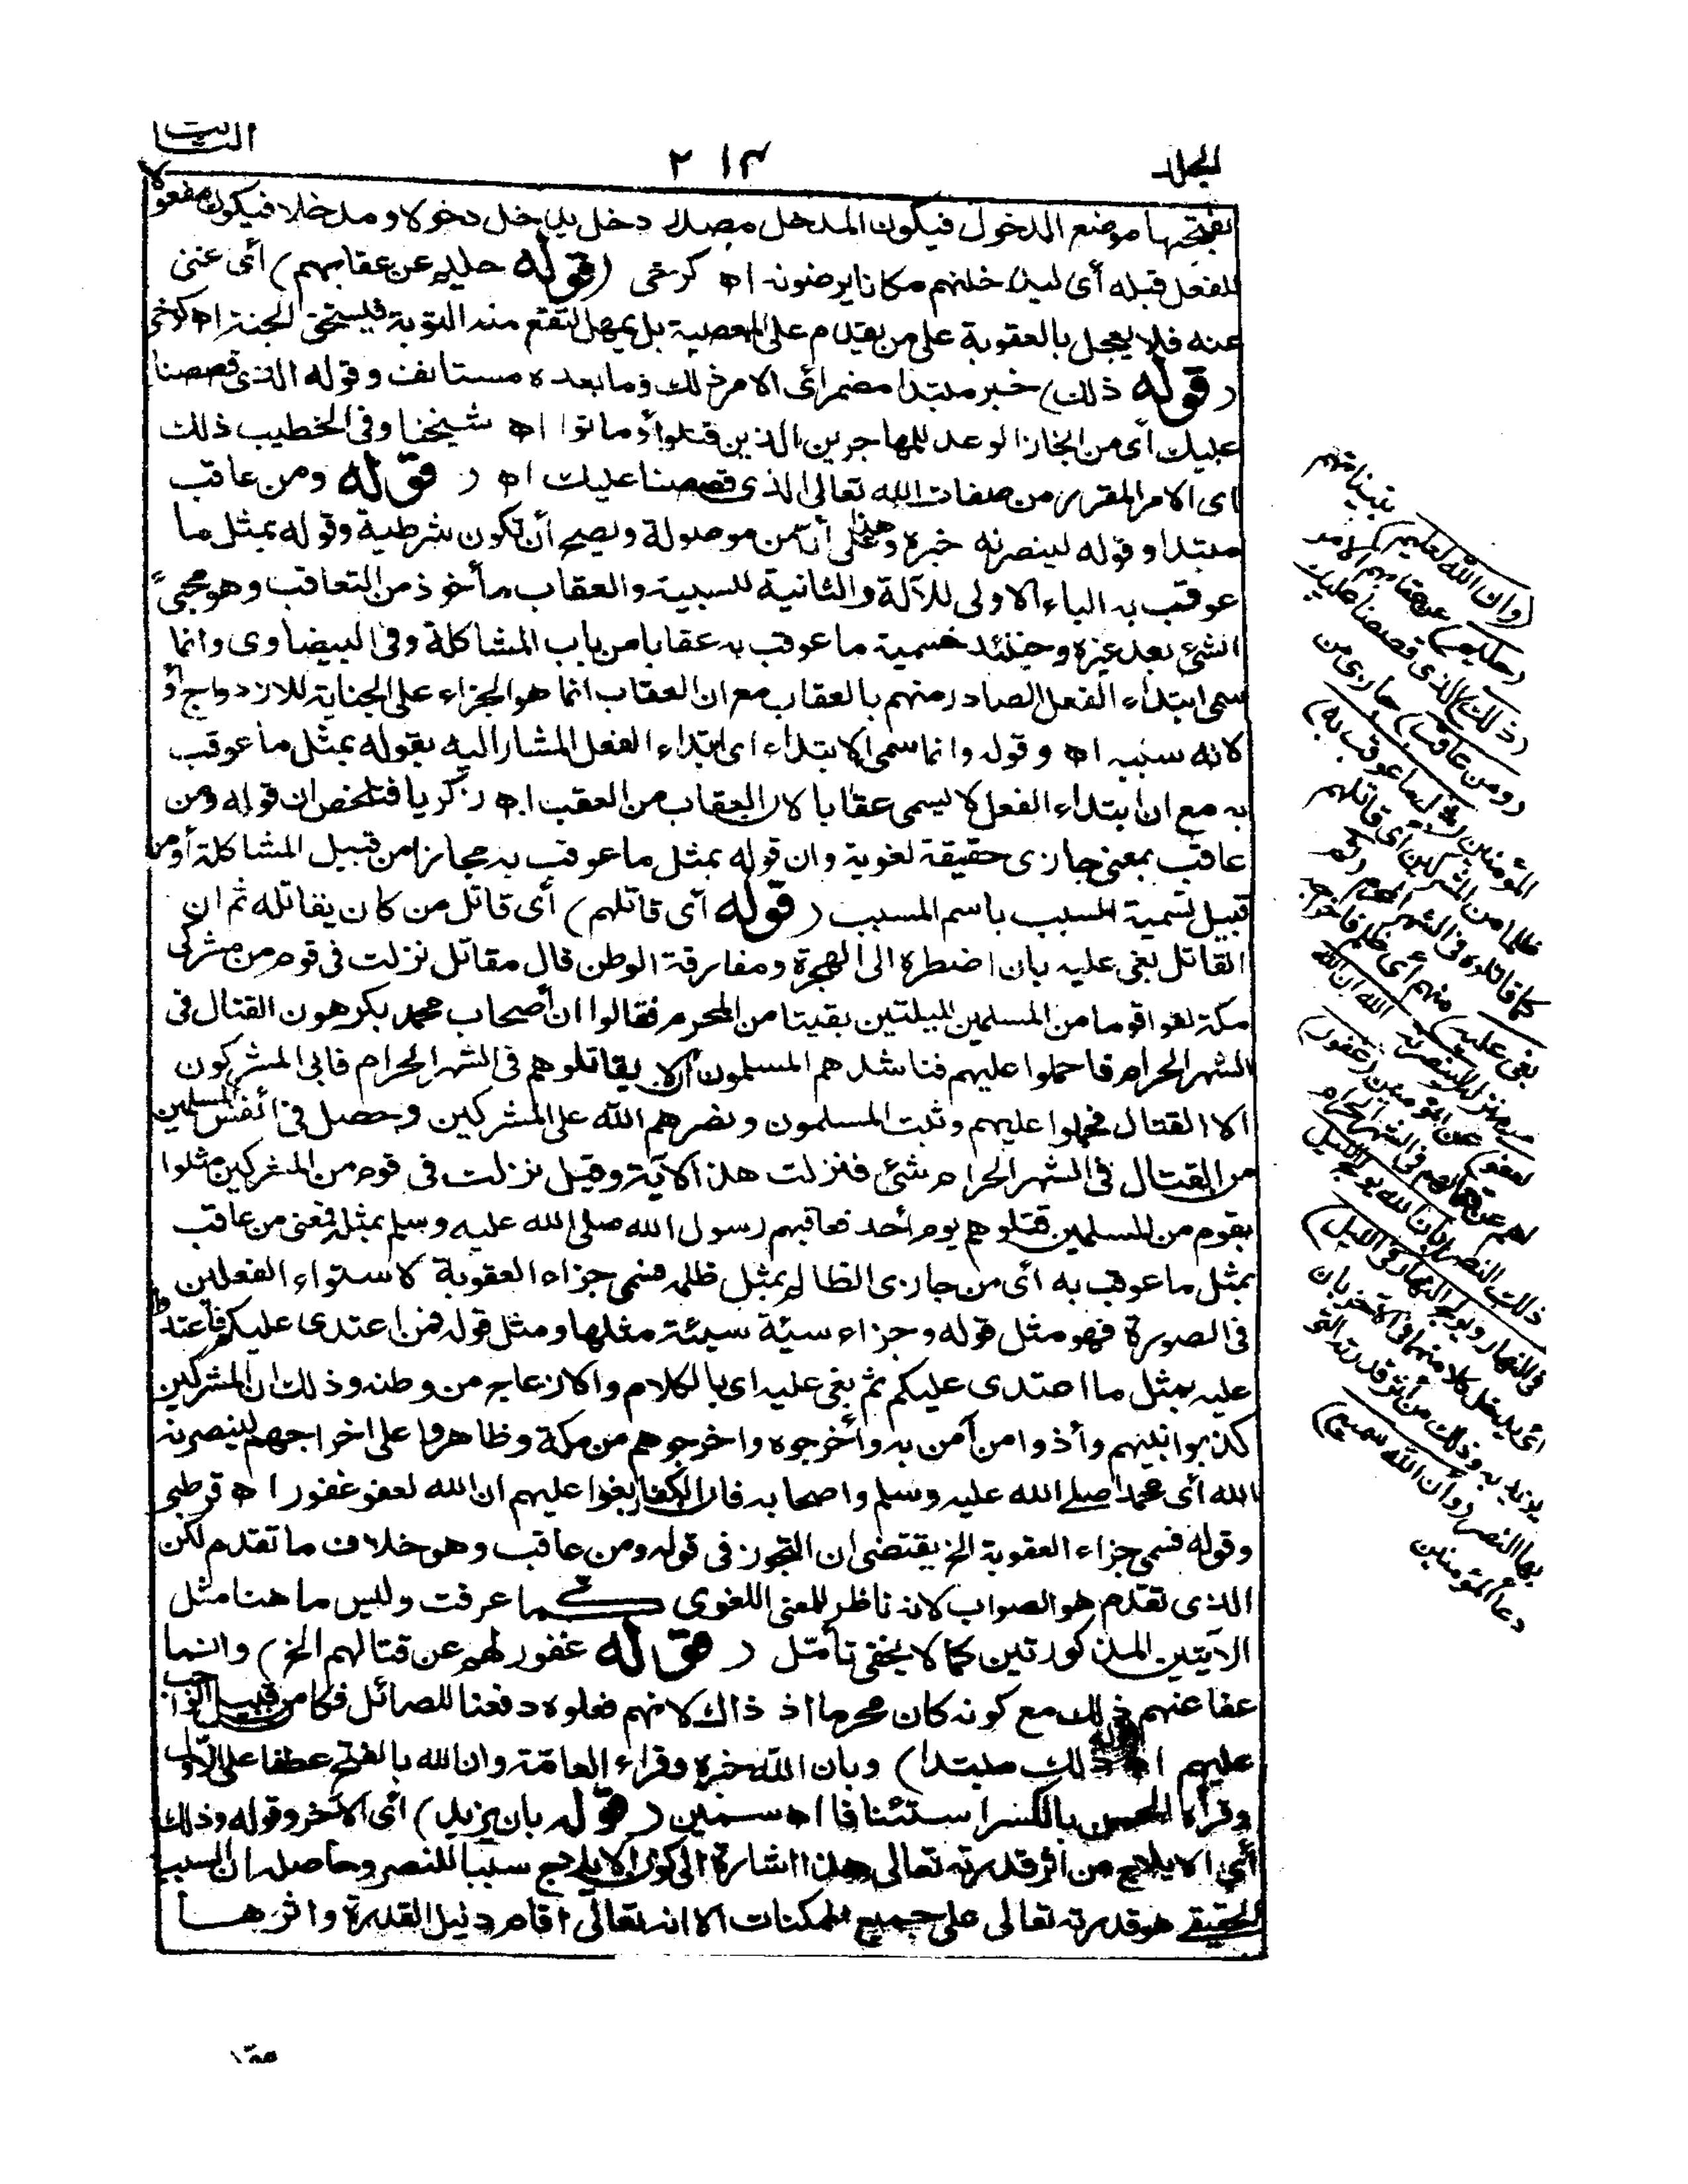 الثالث
المجلد
٢١٣
بفتحها موضع الدخول فيكون المدخل مصدر دخل يدخل دخولا ومدخلا فيكون مفعولا
للفعل قبله أى ليدخلنهم مكانا يرضونه اه كرخى (قوله حليم عن عقابهم) أى عنى
عنه فلا يعجل بالعقوبة على من يقدم على المعصية بل يمهل لتقع منه التوبة فيستحق الجنة اه كرخى
(قوله ذلك) خبر مبتدا مضمر أى الامر ذلك وما بعده مستانف وقوله الذى قصصنا
عليك أى من انجاز الوعد للمهاجرين الذين قتلوا أو ماتوا اه شيخنا وفى الخطيب ذلك
اى الامر المقرر من صفات الله تعالى الذى قصصنا عليك اه (قوله ومن عاقب
مبتدا وقوله لينصرنه خبره وهذا على أن من موصولة ويصح أن تكون شرطية وقوله بمثل ما
عوقب به الباء الاولى للآلة والثانية للسببية والعقاب مأخوذ من التعاقب وهو مجئ
الشئ بعد غيره وحينئذ فتسمية ما عوقب به عقابا من باب المشاكلة وفى البيضاوى وانما
سمى ابتداء الفعل الصادر منهم بالعقاب مع ان العقاب انما هو الجزاء على الجناية للازدواج أو
لانه سببه اه وقوله وانما سمى الابتداء اى ابتداء الفعل المشار اليه بقوله بمثل ما عوقب
به مع ان ابتداء الفعل لا يسمى عقابا لان العقاب من العقب اه زكريا فتلخص ان قوله ومن
عاقب بمعنى جازى حقيقة لغوية وان قوله بمثل ما عوقب به مجاز امن قبيل المشاكلة أو من
قبيل تسمية السبب باسم المسبب (قوله أى قاتلهم) أى قاتل من كان يقاتله ثم ان
القاتل بغى عليه بان اضطره الى الهجرة ومفارقة الوطن قال مقاتل نزلت فى قوم من مشركى
مكة لقوا قوما من المسلمين لليلتين بقيتا من المحرم فقالوا ان أصحاب محمد يكرهون القتال فى
الشهر الحرام فاحملوا عليهم فناشدهم المسلمون أن لا يقاتلوهم فى الشهر الحرام فابى المشركون
الا القتال فحملوا عليهم وثبت المسلمون ونصرهم الله على المشركين وحصل فى أنفس المسلمين
من القتال فى الشهر الحرام شئ فنزلت هذه الآية وقيل نزلت فى قوم من المشركين مثلوا
بقوم من المسلمين قتلوهم يوم أحد فعاقبهم رسول الله صلى الله عليه وسلم بمثله فمعنى من عاقب
بمثل ما عوقب به أى من جازى الظالم بمثل ظلمه فسمى جزاء العقوبة لاستواء الفعلين
فى الصورة فهو مثل قوله وجزاء سيئة سيئة مثلها ومثل قوله فمن اعتدى عليكم فاعتدوا
عليه بمثل ما اعتدى عليكم ثم بغى عليه اى بالكلام والازعاج من وطنه وذلك ان المشركين
كذبوا نبيهم وأذوا من آمن به وأخرجوه واخرجوهم من مكة وظاهروا على اخراجهم لينصرنه
الله أى محمدا صلى الله عليه وسلم واصحابه فان الكفار بغوا عليهم ان الله لعفو غفور اه قرطبى
وقوله فسمى جزاء العقوبة الخ يقتضى ان التجوز فى قوله ومن عاقب وهو خلاف ما تقدم لكن
الذى تقدم هو الصواب لانه ناظر للمعنى اللغوى كما عرفت وليس ما هنا مثل
الآيتين المذكورتين كما لا يخفى تأمل (قوله غفور لهم عن قتالهم الخ) وانما
عفا عنهم ذلك مع كونه كان محرما اذ ذاك لانهم فعلوه دفعا للصائل فكان من قبيل الواجب
عليهم اه (قوله ذلك مبتدا) وبان الله خبره وقراءه العامة وان الله بالفتح عطفا على الاول
وقرأه الحسن بالكسر استئنافا اه سمين (قوله بان يزيد) أى الآخر وقوله وذلك
أى الايلاج من أثر قدرته تعالى هذا اشارة الى كون الايلاج سببا للنصر وحاصله ان السبب
الحقيقى هو قدرته تعالى على جميع الممكنات الا انه تعالى اقام دليل القدرة واثرها
بنياتهم
(وان الله لعليم)
(حليم) عن عقابهم الامر
(ذلك) الذى قصصنا عليك
(ومن عاقب) جازى من
المؤمنين (بمثل ما عوقب به)
ظلما من المشركين أى قاتلهم
كما قاتلوه فى الشهر المحرم (ثم
بغى عليه) منهم أى ظلم باخراجه
من منزله (لينصرنه الله ان الله
لعفو) عن المؤمنين (غفور)
لهم عن قتالهم فى الشهر الحرام
(ذلك) النصر (بان الله يولج الليل
فى النهار ويولج النهار فى الليل)
اى يدخل كلا منهما فى الآخر بان
يزيد به وذلك من أثر قدرته التى
بها النصر (وأن الله سميع)
دعاء المؤمنين